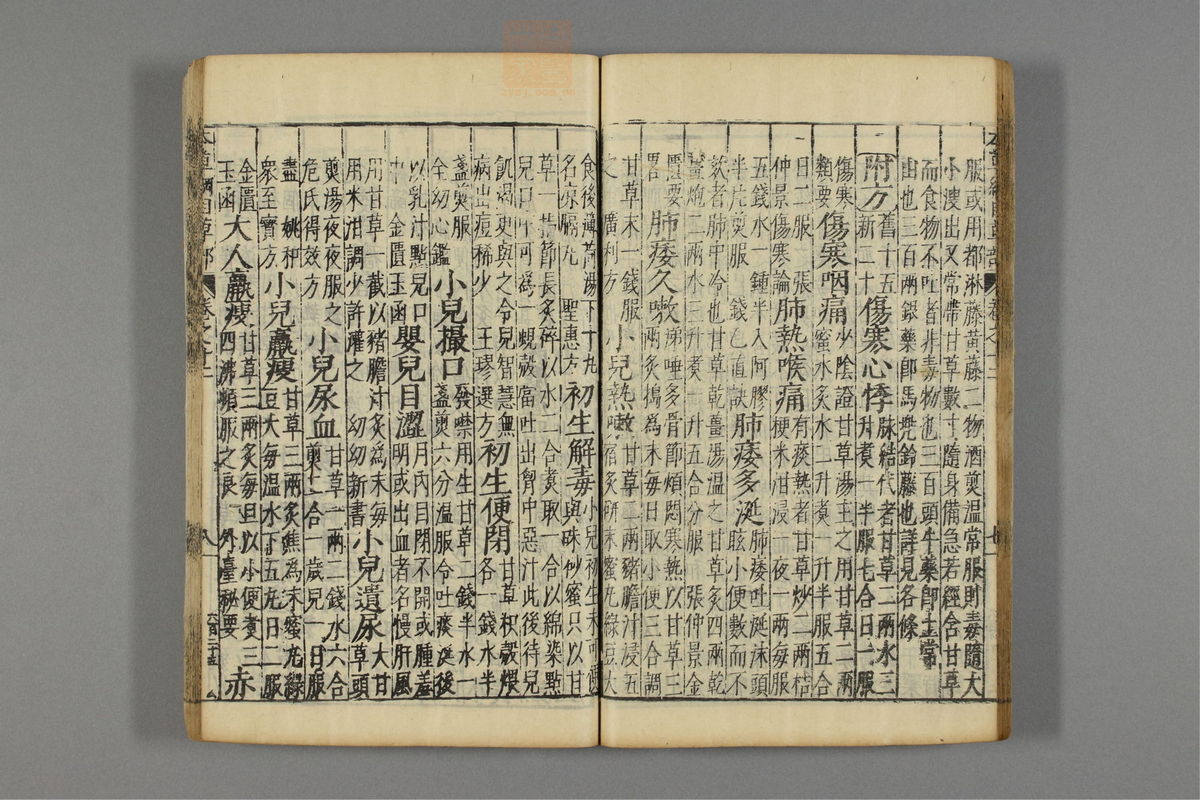 服或用都淋藤黃藤二物酒煎溫常服則毒隨大
小溲出又常帶甘草數寸隨身備急若經含甘草
而食物不吐者非毒物也三百頭牛藥即土常
山也三百兩銀藥即馬兜鈴藤也詳見各條
附方舊十五新二十傷寒心悸脉結代者甘草二兩水三升煮一半服七合日一服
傷寒類要傷寒咽痛少陰證甘草湯主之用甘草二兩蜜水炙水二升煮一升半服五合
日二服 張仲景傷寒論肺熱喉痛有痰熱者甘草炒二兩桔梗米泔浸一夜一兩每服
五錢水一鍾半入阿膠半片煎服 錢乙直訣肺痿多涎肺痿吐涎沫頭眩小便數而不
欬者肺中冷也甘草乾薑湯溫之甘草炙四兩乾薑炮二兩水三升煮一升五合分服 張仲景金
匱要略肺痿久嗽涕唾多骨節煩悶寒熱以甘草三兩炙搗為末每日取小便三合調
甘草末一錢服之 廣利方小兒熱嗽甘草二兩豬膽汁浸五宿炙研末蜜丸綠豆大
食後薄荷湯下十丸名涼膈丸 聖惠方初生解毒小兒初生未可便與硃砂蜜只以甘
草一指節長炙碎以水二合煮取一合以綿染點兒口中可為一蜆殼當吐出胷中惡汁此後待兒
飢渴更與之令兒智慧無病出痘稀少 王璆選方初生便閉甘草枳殼煨各一錢水半
盞煎服全幼心鑑小兒撮口發噤用生甘草二錢半水一盞煎六分溫服令吐痰涎後
以乳汁點兒口中 金匱玉函嬰兒目澀月內目閉不開或腫羞明或出血者名慢肝風
用甘草一截以豬膽汁炙為末每用米泔調少許灌之 幼幼新書小兒遺尿大甘草頭
煎湯夜夜服之危氏得效方小兒尿血甘草一兩二錢水六合煎二合一歲兒一日服
盡 姚和衆至寶方小兒羸瘦甘草三兩炙焦為末蜜丸綠豆大每溫水下五丸日二服
金匱玉函大人羸瘦甘草三兩炙每旦以小便煮三四沸頓服之良 外臺秘要赤